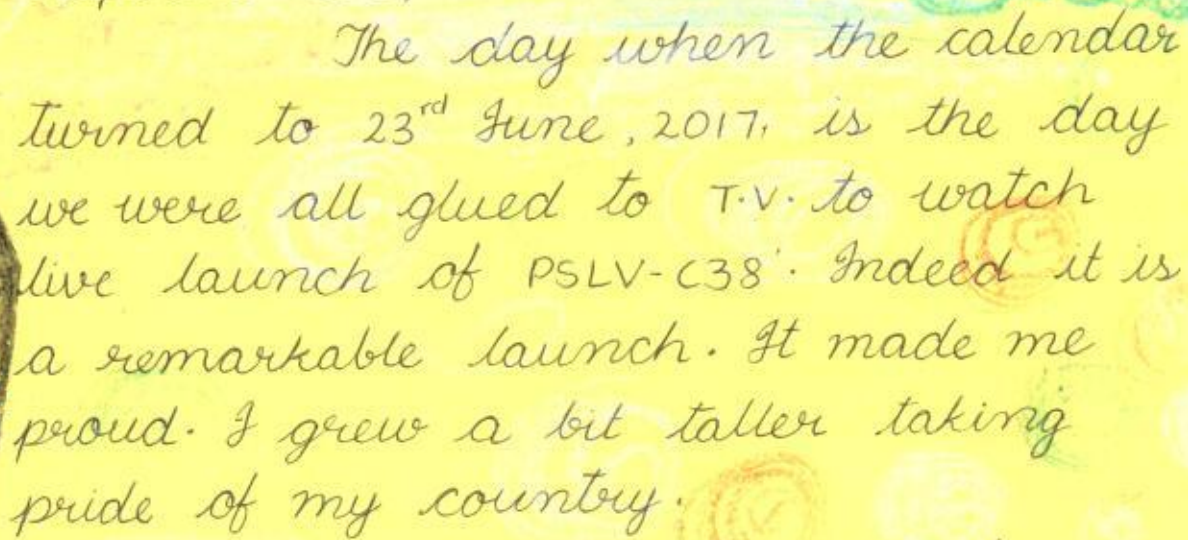 The day when the calendar
turned to 23rd June, 2017, is the day
we were all glued to T.V. to watch
live launch of PSLV-C38. Indeed it is
a remarkable launch. It made me
proud. I grew a bit taller taking
pride of my country.